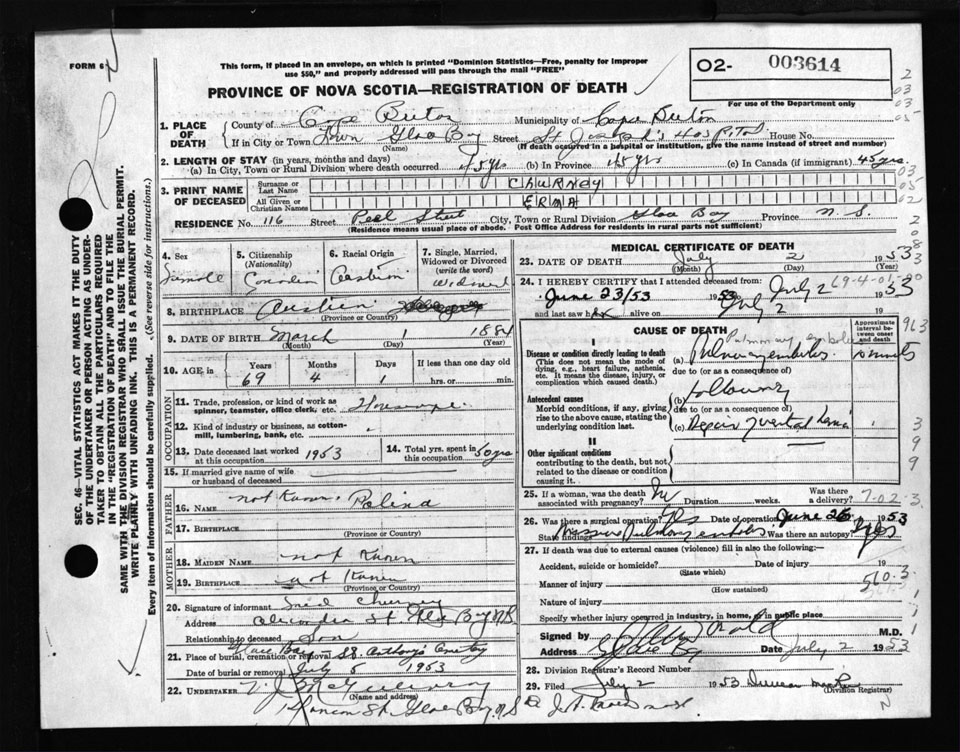 FORM 6
This form, if placed in an envelope, on which is printed "Dominion Statistics—Free, penalty for improper
use $50," and properly addressed will pass through the mail "FREE"
PROVINCE OF NOVA SCOTIA—REGISTRATION OF DEATH
02- 003614
For use of the Department only
1. PLACE OF DEATH
County of Cape Breton Municipality of Cape Breton
If in City or Town Town Glace Bay Street St Joseph's Hospital House No.
(Name) (If death occurred in a hospital or institution, give the name instead of street and number)
2. LENGTH OF STAY (in years, months and days)
(a) In City, Town or Rural Division where death occurred 45 yrs (b) In Province 45 yrs (c) In Canada (if immigrant) 45 yrs.
3. PRINT NAME OF DECEASED
Surname or Last Name CHURNEY
All Given or Christian Names ERMA
RESIDENCE No. 116 Street Peel Street City, Town or Rural Division Glace Bay Province N. S.
(Residence means usual place of abode. Post Office Address for residents in rural parts not sufficient)
4. Sex Female
5. Citizenship (Nationality) Canadian
6. Racial Origin
7. Single, Married, Widowed or Divorced (write the word) Widowed
8. BIRTHPLACE
(Province or Country)
9. DATE OF BIRTH March 1 1884
(Month) (Day) (Year)
10. AGE in Years 69 Months 4 Days 1 If less than one day old
hrs. or min.
OCCUPATION
11. Trade, profession, or kind of work as spinner, teamster, office clerk, etc.
12. Kind of industry or business, as cotton-mill, lumbering, bank, etc.
13. Date deceased last worked at this occupation 1953
14. Total yrs. spent in this occupation 50 yrs
15. If married give name of wife or husband of deceased
FATHER
16. NAME not Known
17. BIRTHPLACE
(Province or Country)
MOTHER
18. MAIDEN NAME not Known
19. BIRTHPLACE not Known
(Province or Country)
20. Signature of informant Churney
Address St Glace Bay N.S.
Relationship to deceased Son
21. Place of burial, cremation or removal Glace Bay St. Anthony's Cemetery
Date of burial or removal July 5 1953
22. UNDERTAKER
(Name and address)
St. Glace Bay N.S
MEDICAL CERTIFICATE OF DEATH
23. DATE OF DEATH July 2 1953
(Month) (Day) (Year)
24. I HEREBY CERTIFY that I attended deceased from:
June 23/53 1953 to July 2 1953
and last saw h alive on July 2 19
CAUSE OF DEATH
Approximate interval between onset and death
I
Disease or condition directly leading to death
(This does not mean the mode of dying, e.g., heart failure, asthenia, etc. It means the disease, injury, or complication which caused death.
(a) Pulmonary embolus
due to (or as a consequence of)
Antecedent causes
Morbid conditions, if any, giving rise to the above cause, stating the underlying condition last.
(b) following
due to (or as a consequence of)
(c) Repair ventral hernia
II
Other significant conditions
contributing to the death, but not related to the disease or condition causing it.
25. If a woman, was the death associated with pregnancy? No Duration weeks. Was there a delivery?
26. Was there a surgical operation? Yes Date of operation June 26 1953
State findings Massive Pulmonary embolus Was there an autopsy? Yes
27. If death was due to external causes (violence) fill in also the following:—
Accident, suicide or homicide? Date of injury 19
(State which)
Manner of injury
(How sustained)
Nature of injury
Specify whether injury occurred in industry, in home, or in public place
Signed by M.D.
Address Glace Bay Date July 2 1953
28. Division Registrar's Record Number
29. Filed July 2 1953 Duncan
(Division Registrar)
SEC. 46—VITAL STATISTICS ACT MAKES IT THE DUTY
OF THE UNDERTAKER OR PERSON ACTING AS UNDER-
TAKER TO OBTAIN ALL THE PARTICULARS REQUIRED
IN THE "REGISTRATION OF DEATH" AND TO FILE THE
SAME WITH THE DIVISION REGISTRAR WHO SHALL ISSUE THE BURIAL PERMIT.
WRITE PLAINLY WITH UNFADING INK. THIS IS A PERMANENT RECORD.
Every item of information should be carefully supplied. (See reverse side for instructions.)